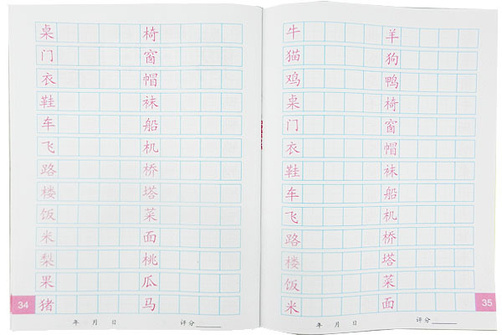 桌 椅
门 窗
衣 帽
鞋 袜
车 船
飞 机
路 桥
楼 塔
饭 菜
米 面
梨 桃
果 瓜
猪 马
34 年 月 日 评分
牛 羊
猫 狗
鸡 鸭
桌 椅
门 窗
衣 帽
鞋 袜
车 船
飞 机
路 桥
楼 塔
饭 菜
米 面
年 月 日 评分 35